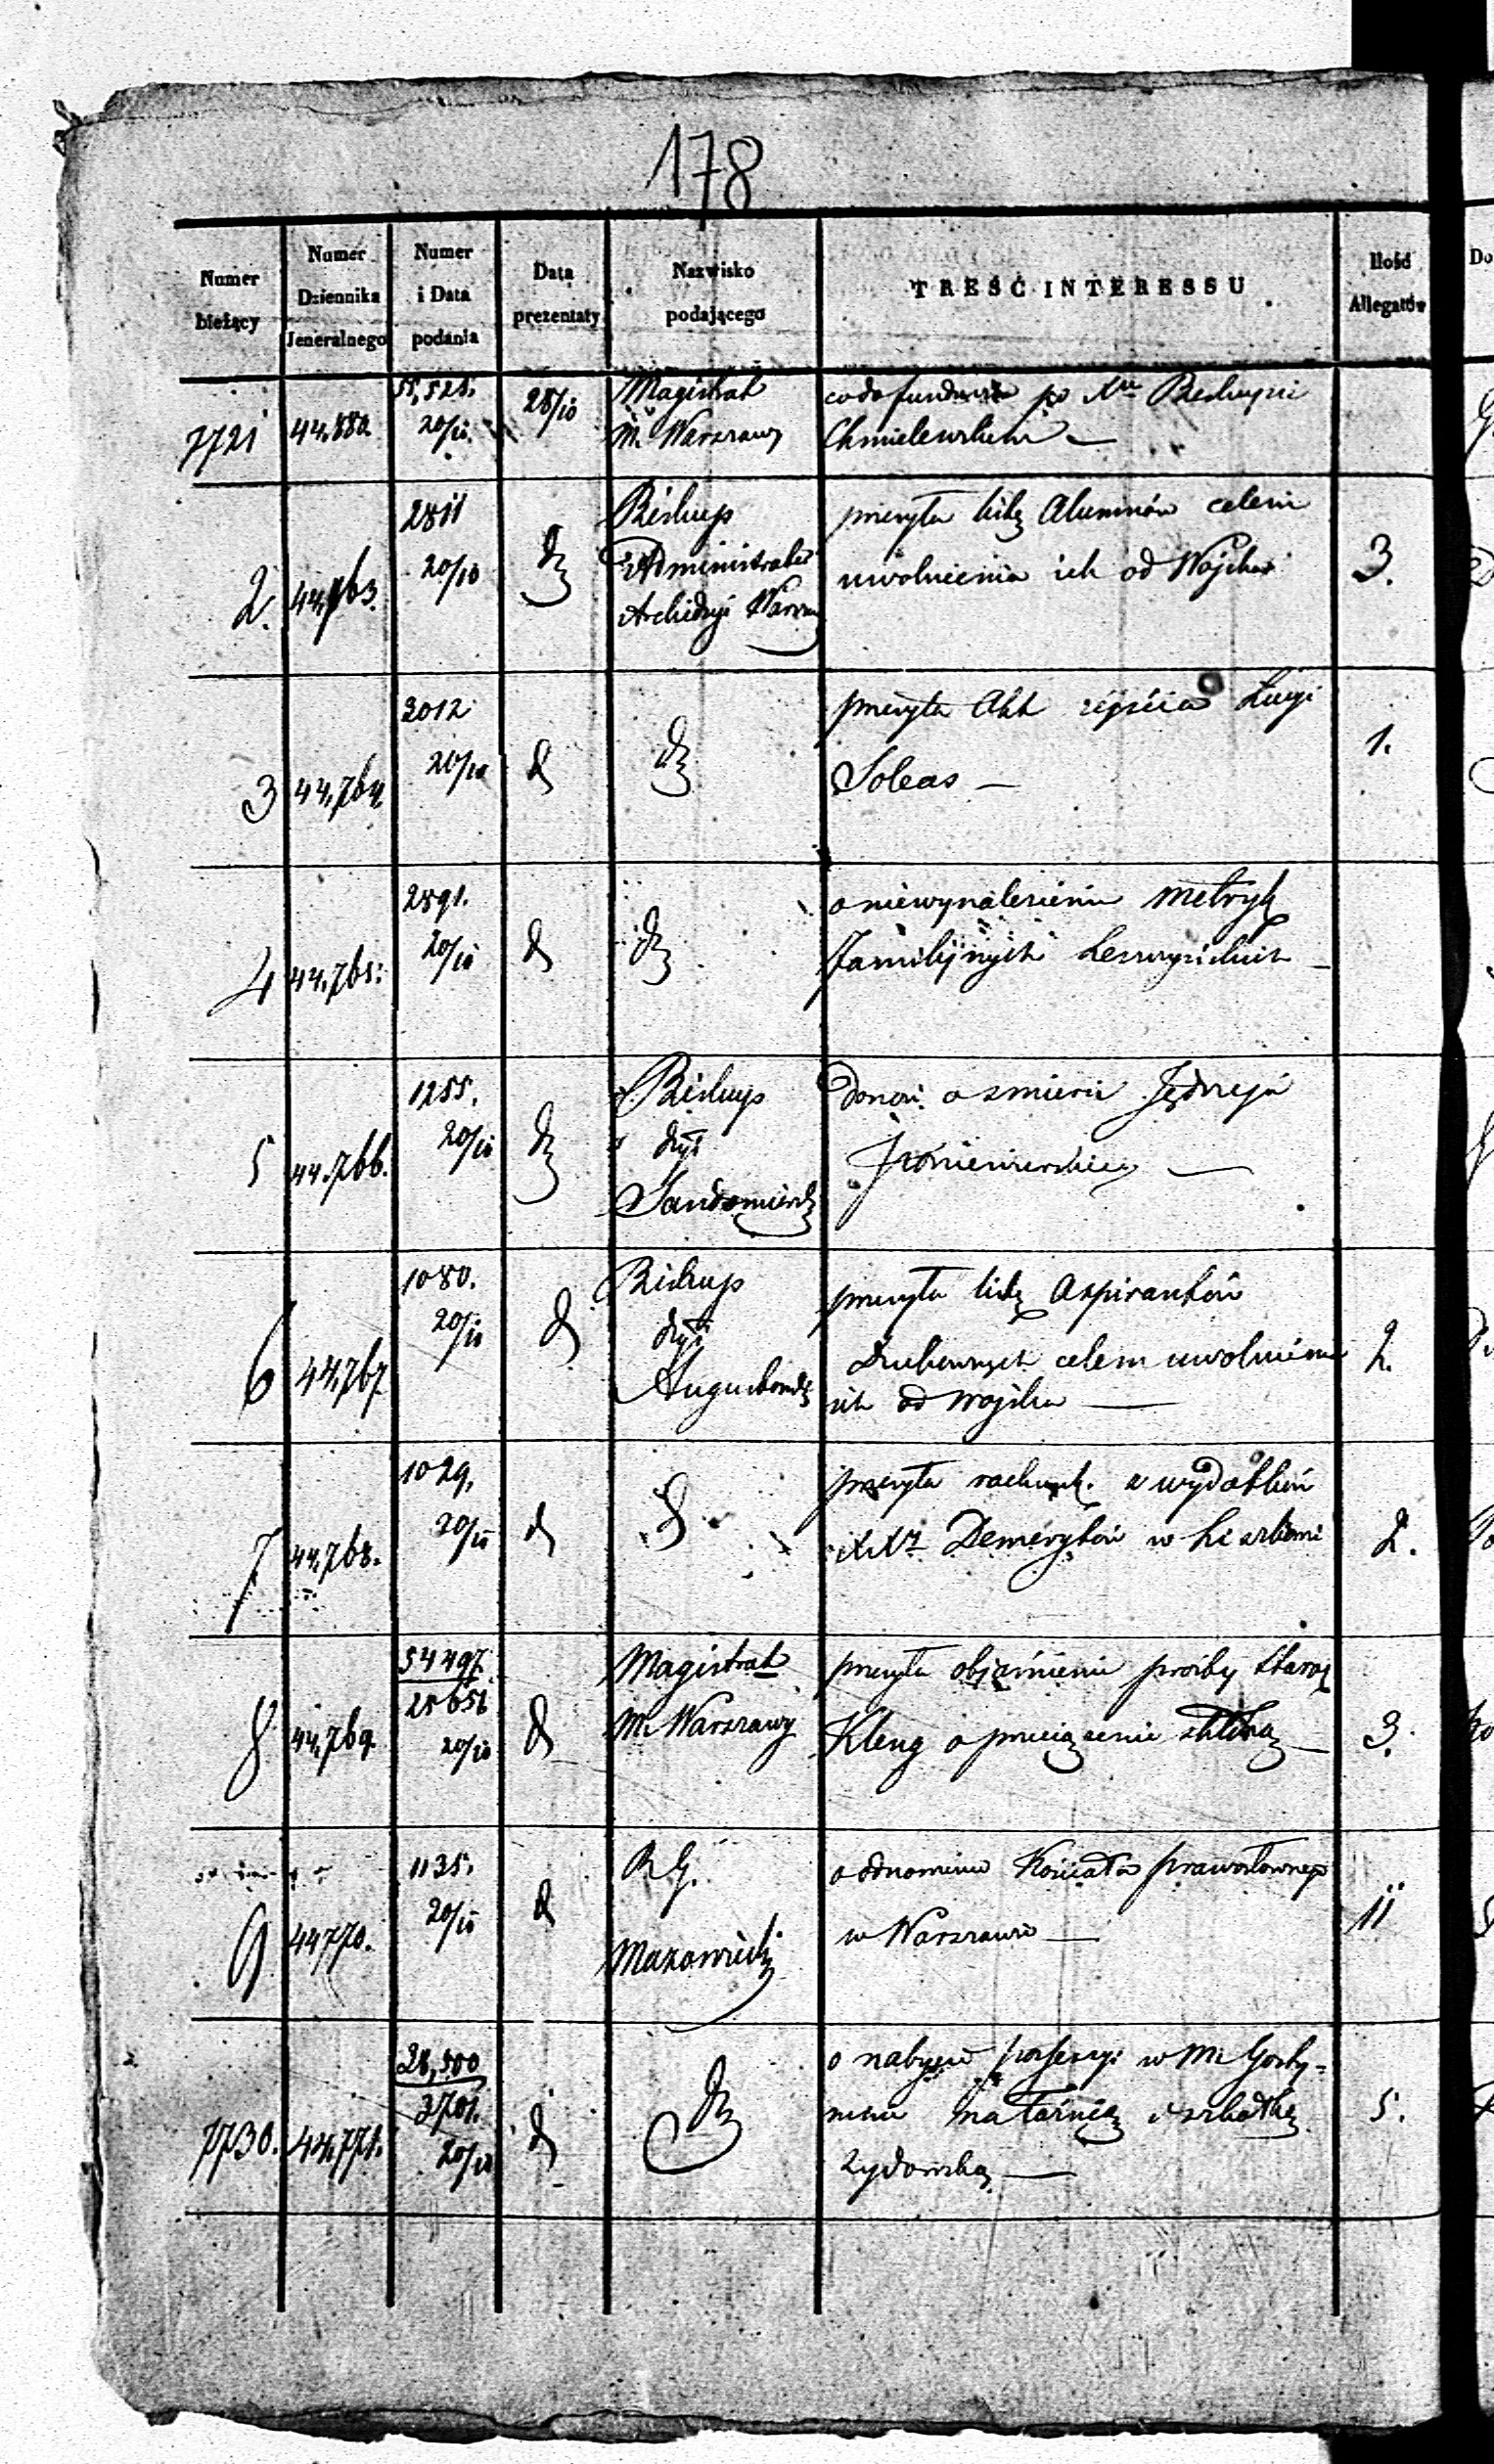 178
Numer bieżący
Numer Dziennika Jeneralnego
Numer i Data podania
Data prezentaty
Nazwisko podającego
TREŚĆ INTERESSU
Ilość Allegatów
Do
7721 44,880. 55,521. 20/10 28/10 Magistrat
m. Warszawy
co do funduszu po Xu Biskupie
Chmielewskim —
2. 44,763. 2811 20/10 dz Biskup
Administrator
Archidyi Warsz
przesyła listę Alumnów celem
uwolnienia ich od Wojska
3.
3 44,764 3012 20/10 d dz
przesyła Akt zejścia Łucyi
Soleas —
1.
4 44,765. 2891. 20/10 d dz
o niewynalezieniu metryk
familijnych —
5 44,766. 1255. 20/10 dz Biskup
dyi
Sandomiersk
donosi o śmierci Jędrzeja
6 44,767 1080. 20/10 d Biskup
dyi
Augustowsk
przesyła listę Aspirantów
Duchownych celem uwolnienia
ich od wojska —
2.
7 44,768. 1029. 20/10 d d
przesyła rachunk. z wydatków
XXży Demerytów w
2.
8 44,769. 54497 20/10 d Magistrat
m. Warszawy
przesyła objaśnienie prośby
Kleng o
3.
9 44770. 1135. 20/10 d R. G.
Mazowiecki
o odnowieniu Kościoła prawosławnego
w Warszawie —
11
7730. 44,771. 28,500 3701. 20/10 d dz
o nabycie possessyi w m. Gosty-
ninie na łaźnię i szkółkę
żydowską —
5.